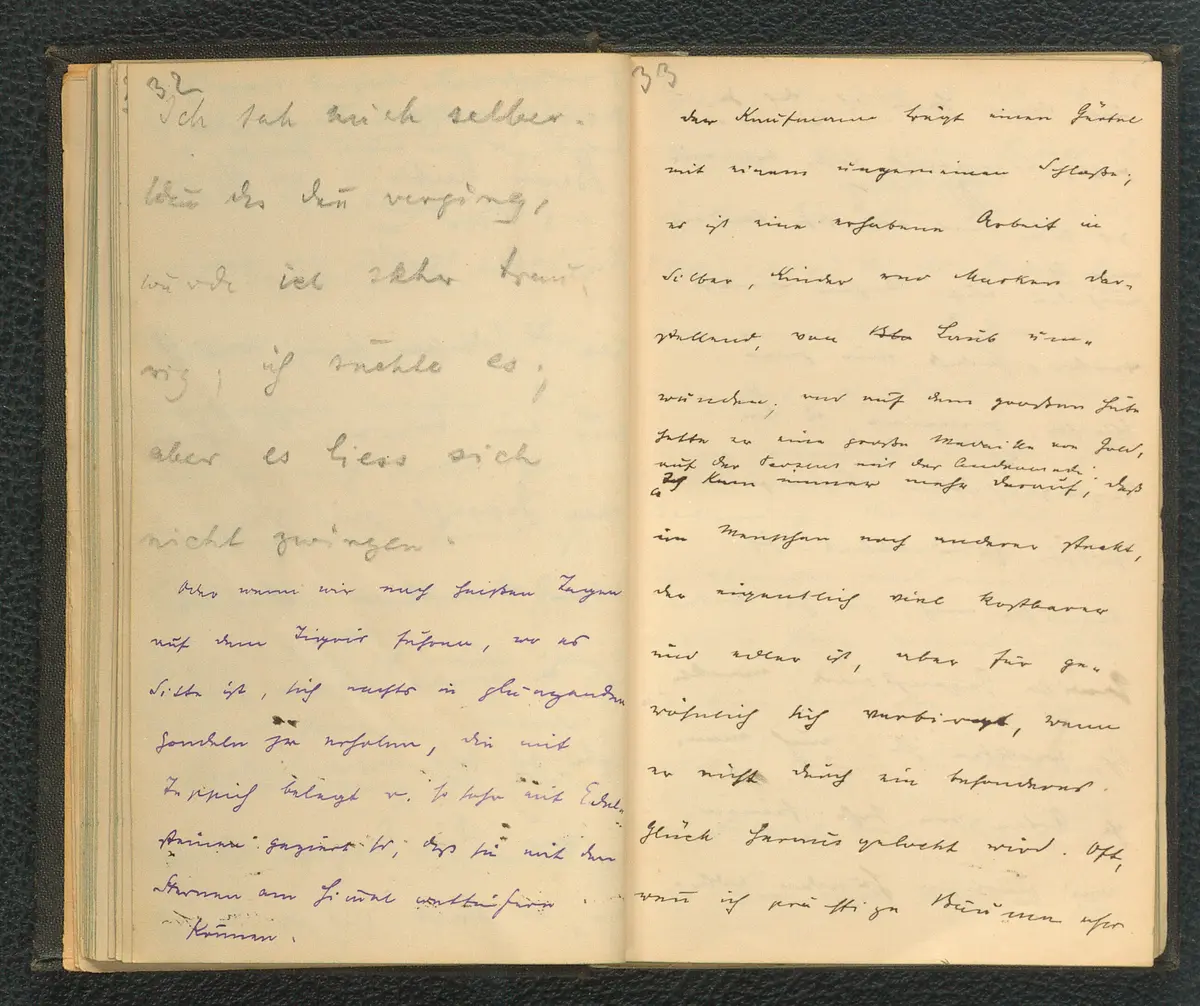 32
Ich sah mich selber.
Wenn das dann verging,
wurde ich sehr trau-
rig; ich suchte es;
aber es liess sich
nicht zwingen.
Oder wenn wir nach heißen Tagen
auf dem Tigris fuhren, wo es
Sitte ist, sich nachts in glänzenden
Gondeln zu erholen, die mit
Teppich belegt u. so sehr mit Edel-
steinen geziert sind, daß sie mit den
Sternen am Himmel wetteifern
können.
33
der Kaufmann trägt einen Gürtel
mit einem ungemeinen Schloße;
es ist eine erhabene Arbeit in
Silber, Kinder und Masken dar-
stellend, von Laub um-
wunden; und auf dem großen Hute
hatte er eine große Medaille von Gold,
auf der Perseus mit der Andromeda
Ich kam immer mehr darauf, daß
im Menschen noch anderer steckt,
der eigentlich viel kostbarer
und edler ist, aber für ge-
wöhnlich sich verbirgt, wenn
er nicht durch ein besonderes
Glück herausgelockt wird. Oft,
wenn ich prächtige Bäume oder